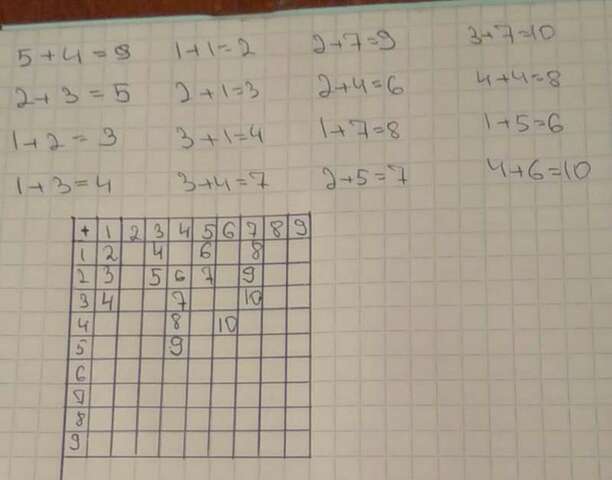 5+4=9 1+1=2 2+7=9 3+7=10
2+3=5 2+1=3 2+4=6 4+4=8
1+2=3 3+1=4 1+7=8 1+5=6
1+3=4 3+4=7 2+5=7 4+6=10
+ 1 2 3 4 5 6 7 8 9
1 2 4 6 8
2 3 5 6 7 9
3 4 7 10
4 8 10
5 9
6
7
8
9